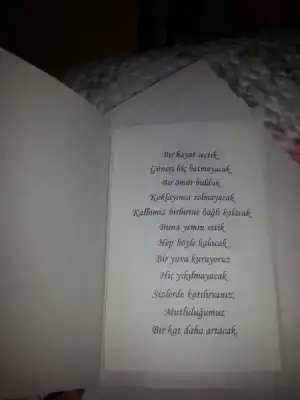 Bir hayat seçtik
Güneşi hiç batmayacak
Bir ömür bulduk
Koklayınca solmayacak
Kalbimiz birbirine bağlı kalacak
Buna yemin ettik
Hep böyle kalacak
Bir yuva kuruyoruz
Hiç yıkılmayacak
Sizlerde katılırsanız,
Mutluluğumuz
Bir kat daha artacak.